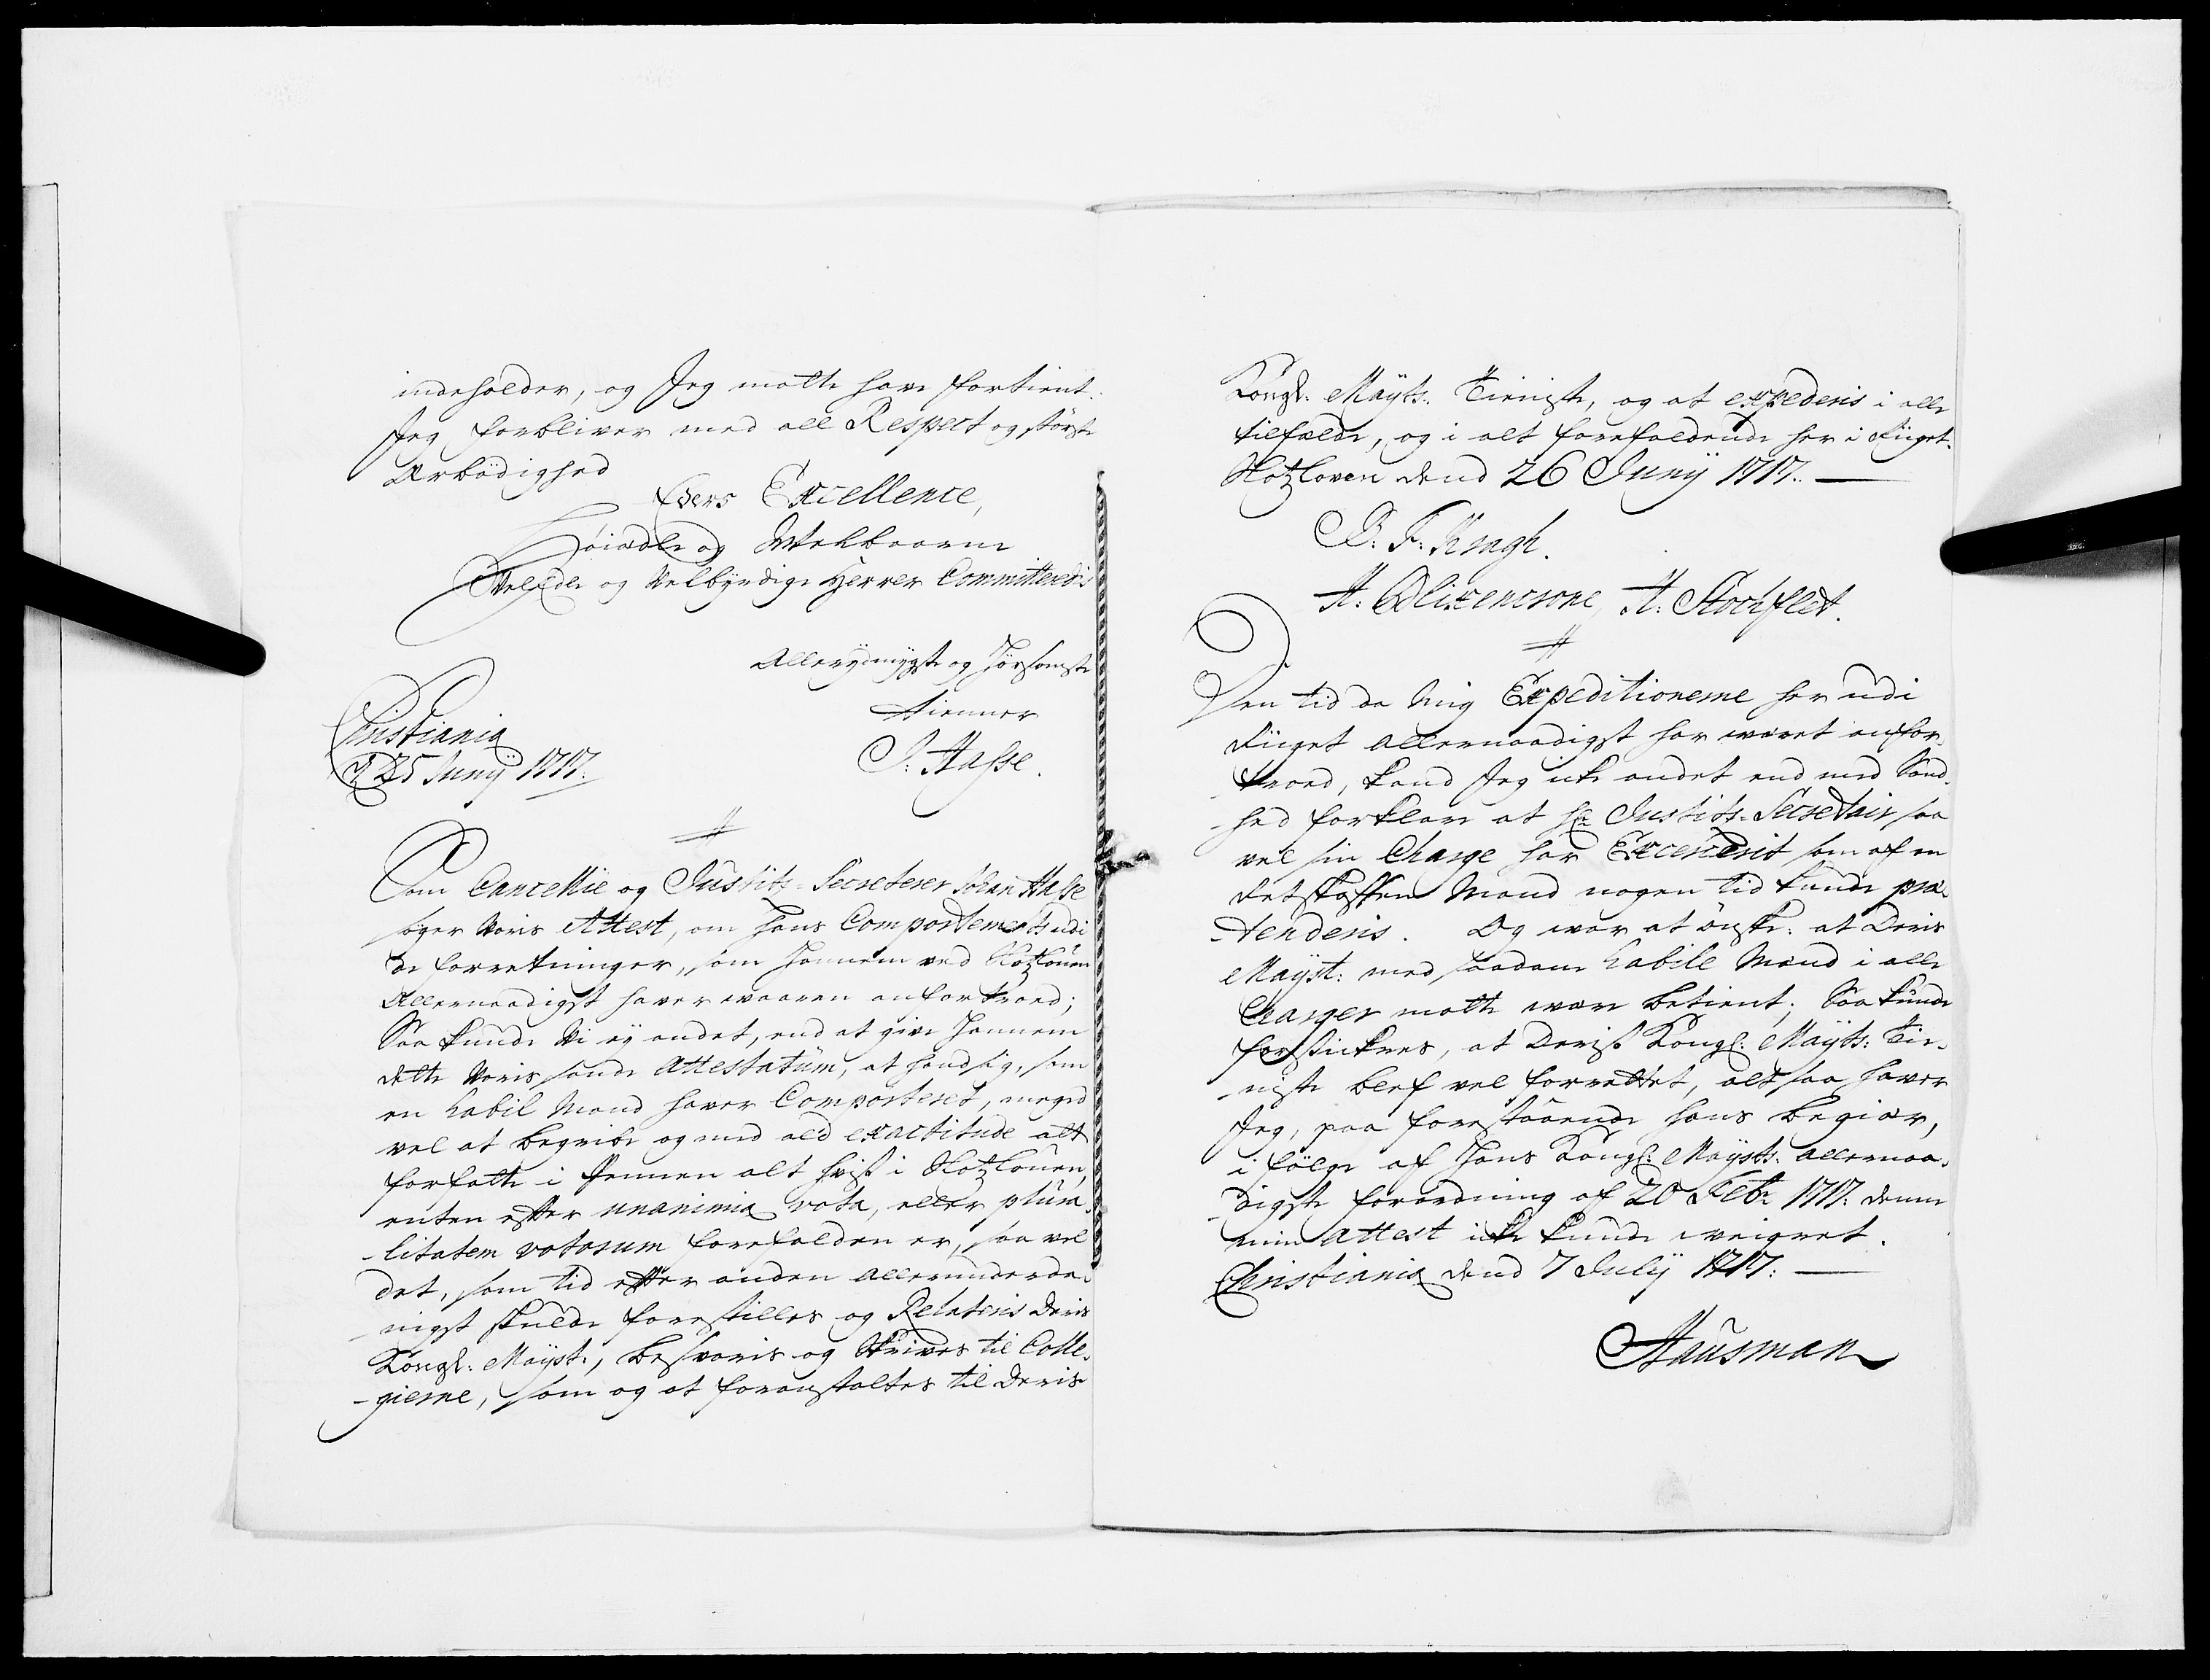 indeholder, og Jeg motte have fortient.
Jeg forbliver med all Respect og störste
Ærbödighed
Eders Excellence,
Höiædle og Welbaarne
VelEdle og Velbÿrdige Herrer Committerede
Allerÿdmÿgste og Hörsomste
Tienner
J: Hasse.
Christiania
d 25 Junÿ 1717.
Som Cancellie og Justitz-Secreterer Johan Hasse
söger Voris Attest, om hans Comportements udi
de forretninger, som hannem ved Slotzloven
Allernaadigst haver waaren anfortroed;
Saa kunde Vi eÿ andet, end at give hannem
dette Voris sande Attestatum, at hand sig, som
en habil Mand haver Comporteret, meged
vel at begribe og med all exactitude alt
forfatte i Pennen alt hvis i Slotzloven,
enten efter unanimia vota, eller plura-
-litatem votorum forefalden er, saa vel
det, som tid efter anden allerunderda-
-nigst skulde forestilles og Relateris Deris
Kongl: Maÿst:, besvaris og Skrives til Colle-
-gierne, som og at foranstaltes til Deris
Kongl: Maÿts: Tieniste, og at expederis i alle
tilfælde, og i alt forefaldende her i Riiget.
Slotzloven dend 26 Junÿ 1717.
B: F: Kragh.
H: C Blixencrone, H: C Stochflet.
Den tid da Mig Expeditionerne her udi
Riiget allernaadigst har wæret anfor-
-troed, kand Jeg icke andet end med Sand-
-hed forklare at Hr Justits-Secretair saa
vel sin Charge har Excercerit som af en
retskaffen Mand nogen tid kunde præ-
-tenderis. Og war at önske: at Deris
Maÿst: med saadane habile Mænd i alle
Charger motte være betient; Saa kunde
forsickres, at Deris Kongl: Maÿts: Tie-
-niste blef vel forrettet, alt saa haver
Jeg, paa forestaaende hans begiær,
i fölge af Hans Kongl: Maÿsts: allernaa-
-digste forordning af 20 Febr: 1717: denne
min Attest icke kunde weigret.
Christiania dend 7 Julÿ 1717:
Hausman